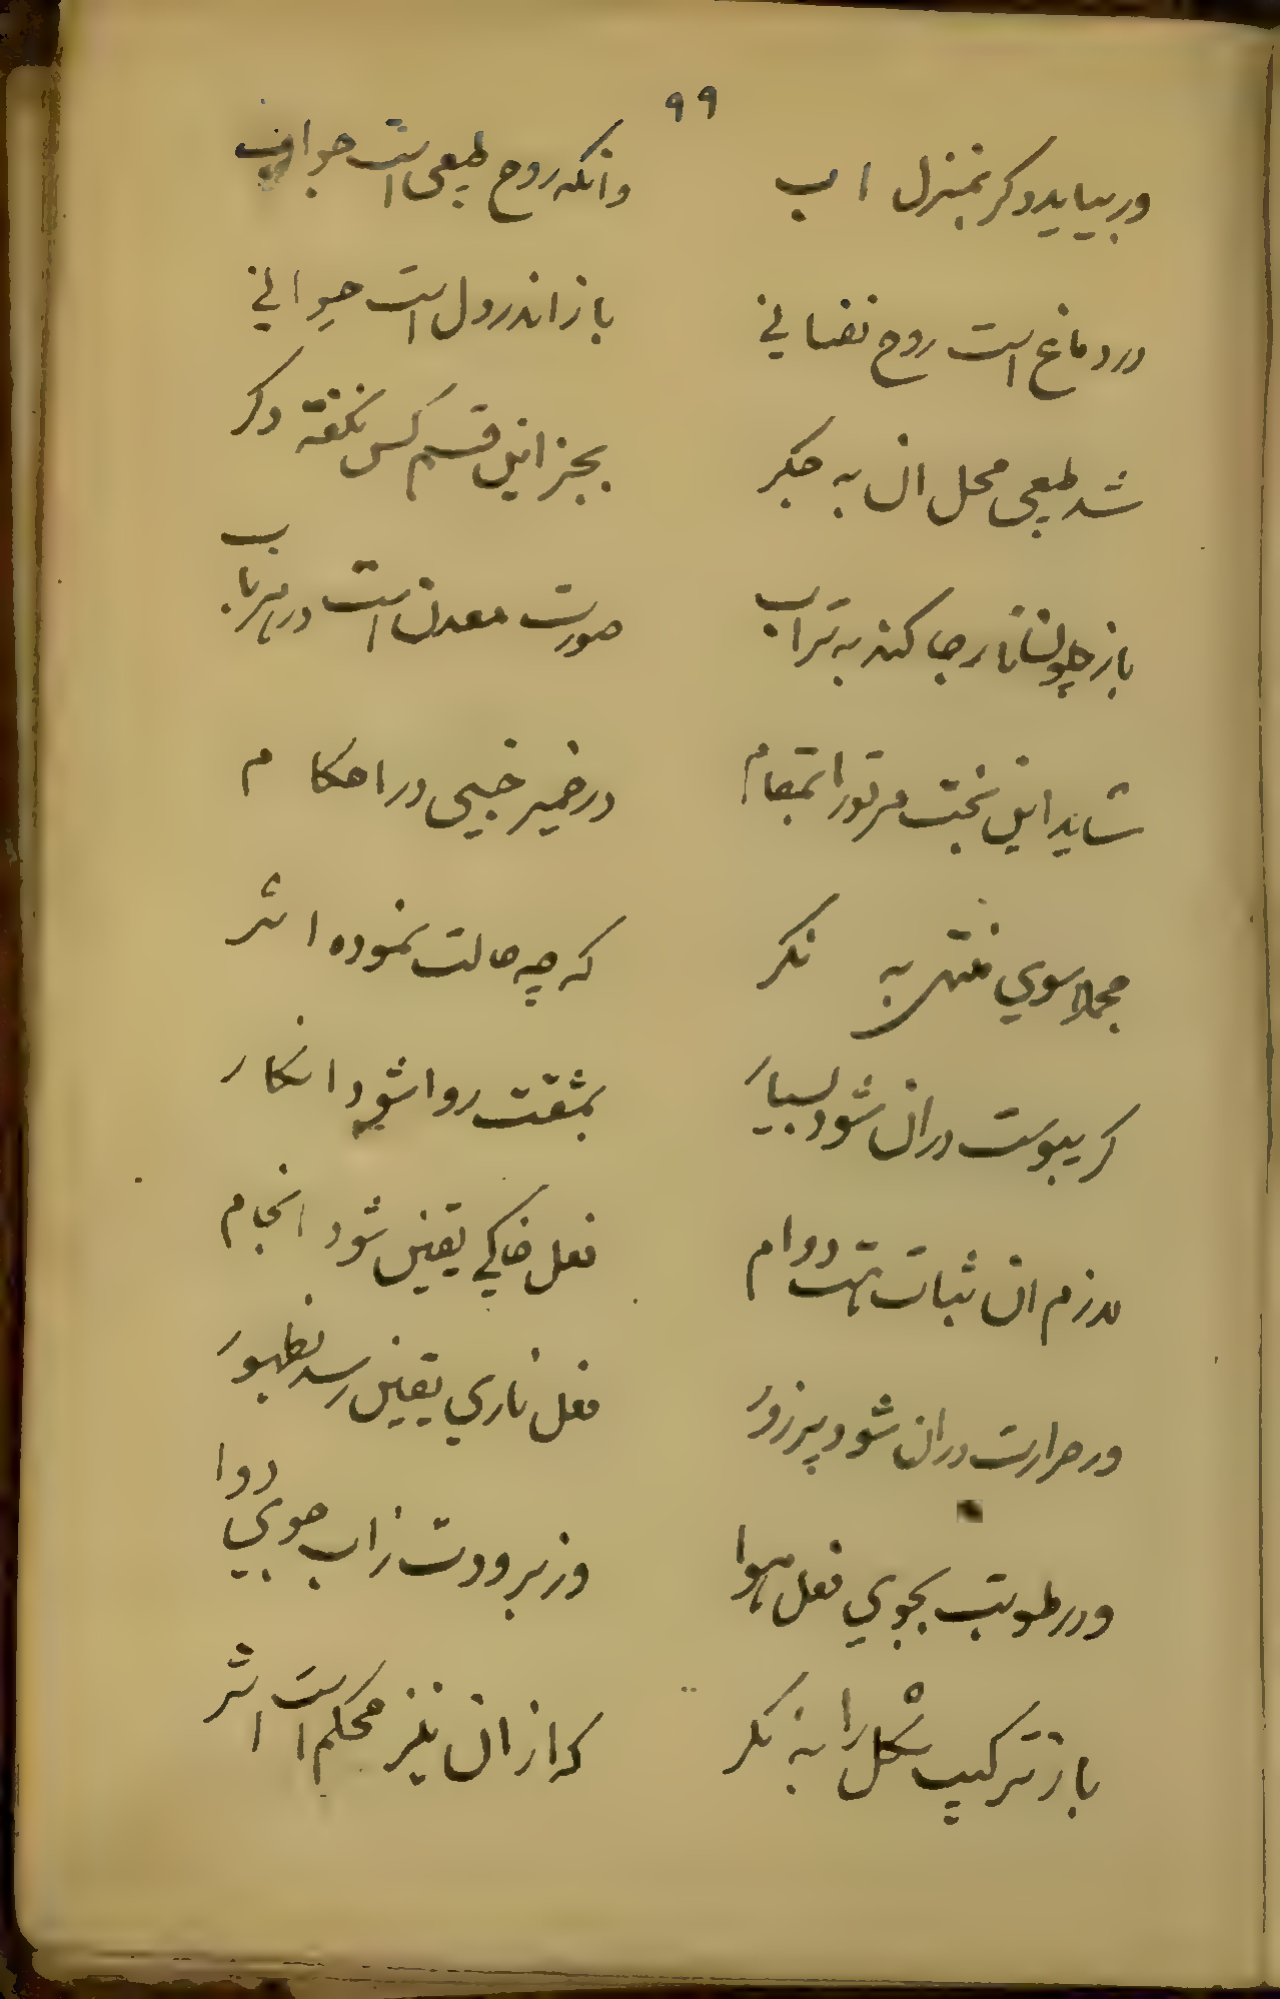 ۹۹
وربیاید دکر بمنزل اب وانکه روح طبیعی است
در دماغ است روح نفسانی باز اندر دل است حیوانی
شد طبیعی محل ان به جکر بجز این قسم کس نکفته دکر
باز چون نار جا کند به تراب صورت معدن است دریاب
شاید این نجت مر تورا بمقام در ضمیر خبیی در احکام
مجملا سوی به نکر که چه حالت نموده اثر
کر یبوست دران شود بسیار بمشقت روا شود انکار
لازم ان ثبات هت دوام فعل خاکی یقین شود انجام
ور حرارت دران شود پرزور فعل ناری یقین رسد بظهور
ور رطوبت بجوی فعل هوا وز برودت زاب جوی دوا
باز ترکیب شکل را به نکر که ازان نیز محکم است اثر